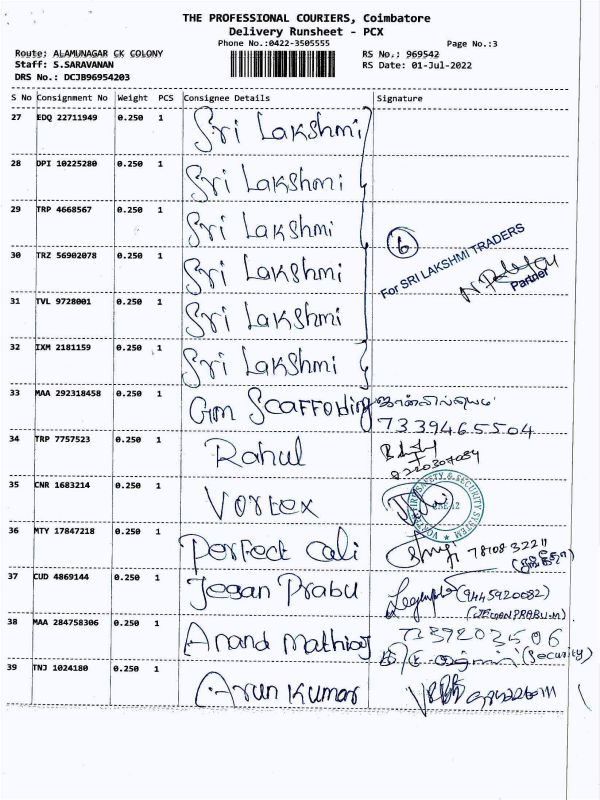 THE PROFESSIONAL COURIERS, Coimbatore
Delivery Runsheet - PCX
Phone No.:0422-3505555
Page No.:3
Route: ALAMUNAGAR CK COLONY
RS No.: 969542
Staff: S.SARAVANAN
RS Date: 01-Jul-2022
DRS No.: DCJB96954203
S No Consignment No Weight PCS Consignee Details Signature
27 EDQ 22711949 0.250 1 Sri Lakshmi
28 DPI 10225280 0.250 1 Sri Lakshmi
29 TRP 4668567 0.250 1 Sri Lakshmi
6
For SRI LAKSHMI TRADERS
Partner
30 TRZ 56902078 0.250 1 Sri Lakshmi
31 TVL 9728001 0.250 1 Sri Lakshmi
32 IXM 2181159 0.250 1 Sri Lakshmi
33 MAA 292318458 0.250 1 Gm Scaffolding
7339465504
34 TRP 7757523 0.250 1 Rahul
35 CNR 1683214 0.250 1 Vortex
SAFETY & SECURITY SYSTEM
36 MTY 17847218 0.250 1 Perfect Cali
78108 32211
37 CUD 4869144 0.250 1 Jegan Prabu
(9445920082)
(JEGANPRABU.M)
38 MAA 284758306 0.250 1 Anand Mathiaj
7339203506
(Security)
39 TNJ 1024180 0.250 1 Arun Kumar